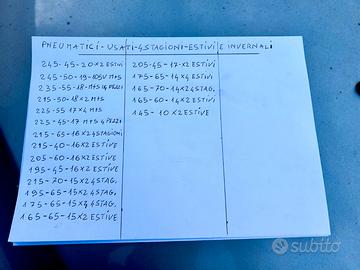 PNEUMATICI-USATI-4STAGIONI-ESTIVI E INVERNALI
245-45-20×2 ESTIVI
245-50-19-105V M+S
235-55-18-M+S 4 PEZZI
215-50-18×2 M+S
225-55-17×4 M+S
225-45-17 M+S 4 PEZZI
215-65-16×2 4STAGIONI
215-40-16×2 ESTIVE
205-60-16×2 ESTIVE
195-45-16×2 ESTIVE
215-70-15×2 4STAG.
195-65-15×2 4STAG.
175-65-15×4 4STAG.
165-65-15×2 ESTIVE
205-45-17-×2 ESTIVI
175-65-14×4 ESTIVI
165-70-14×2 4STAG.
165-60-14×2 ESTIVI
145-10×2 ESTIVE
subito